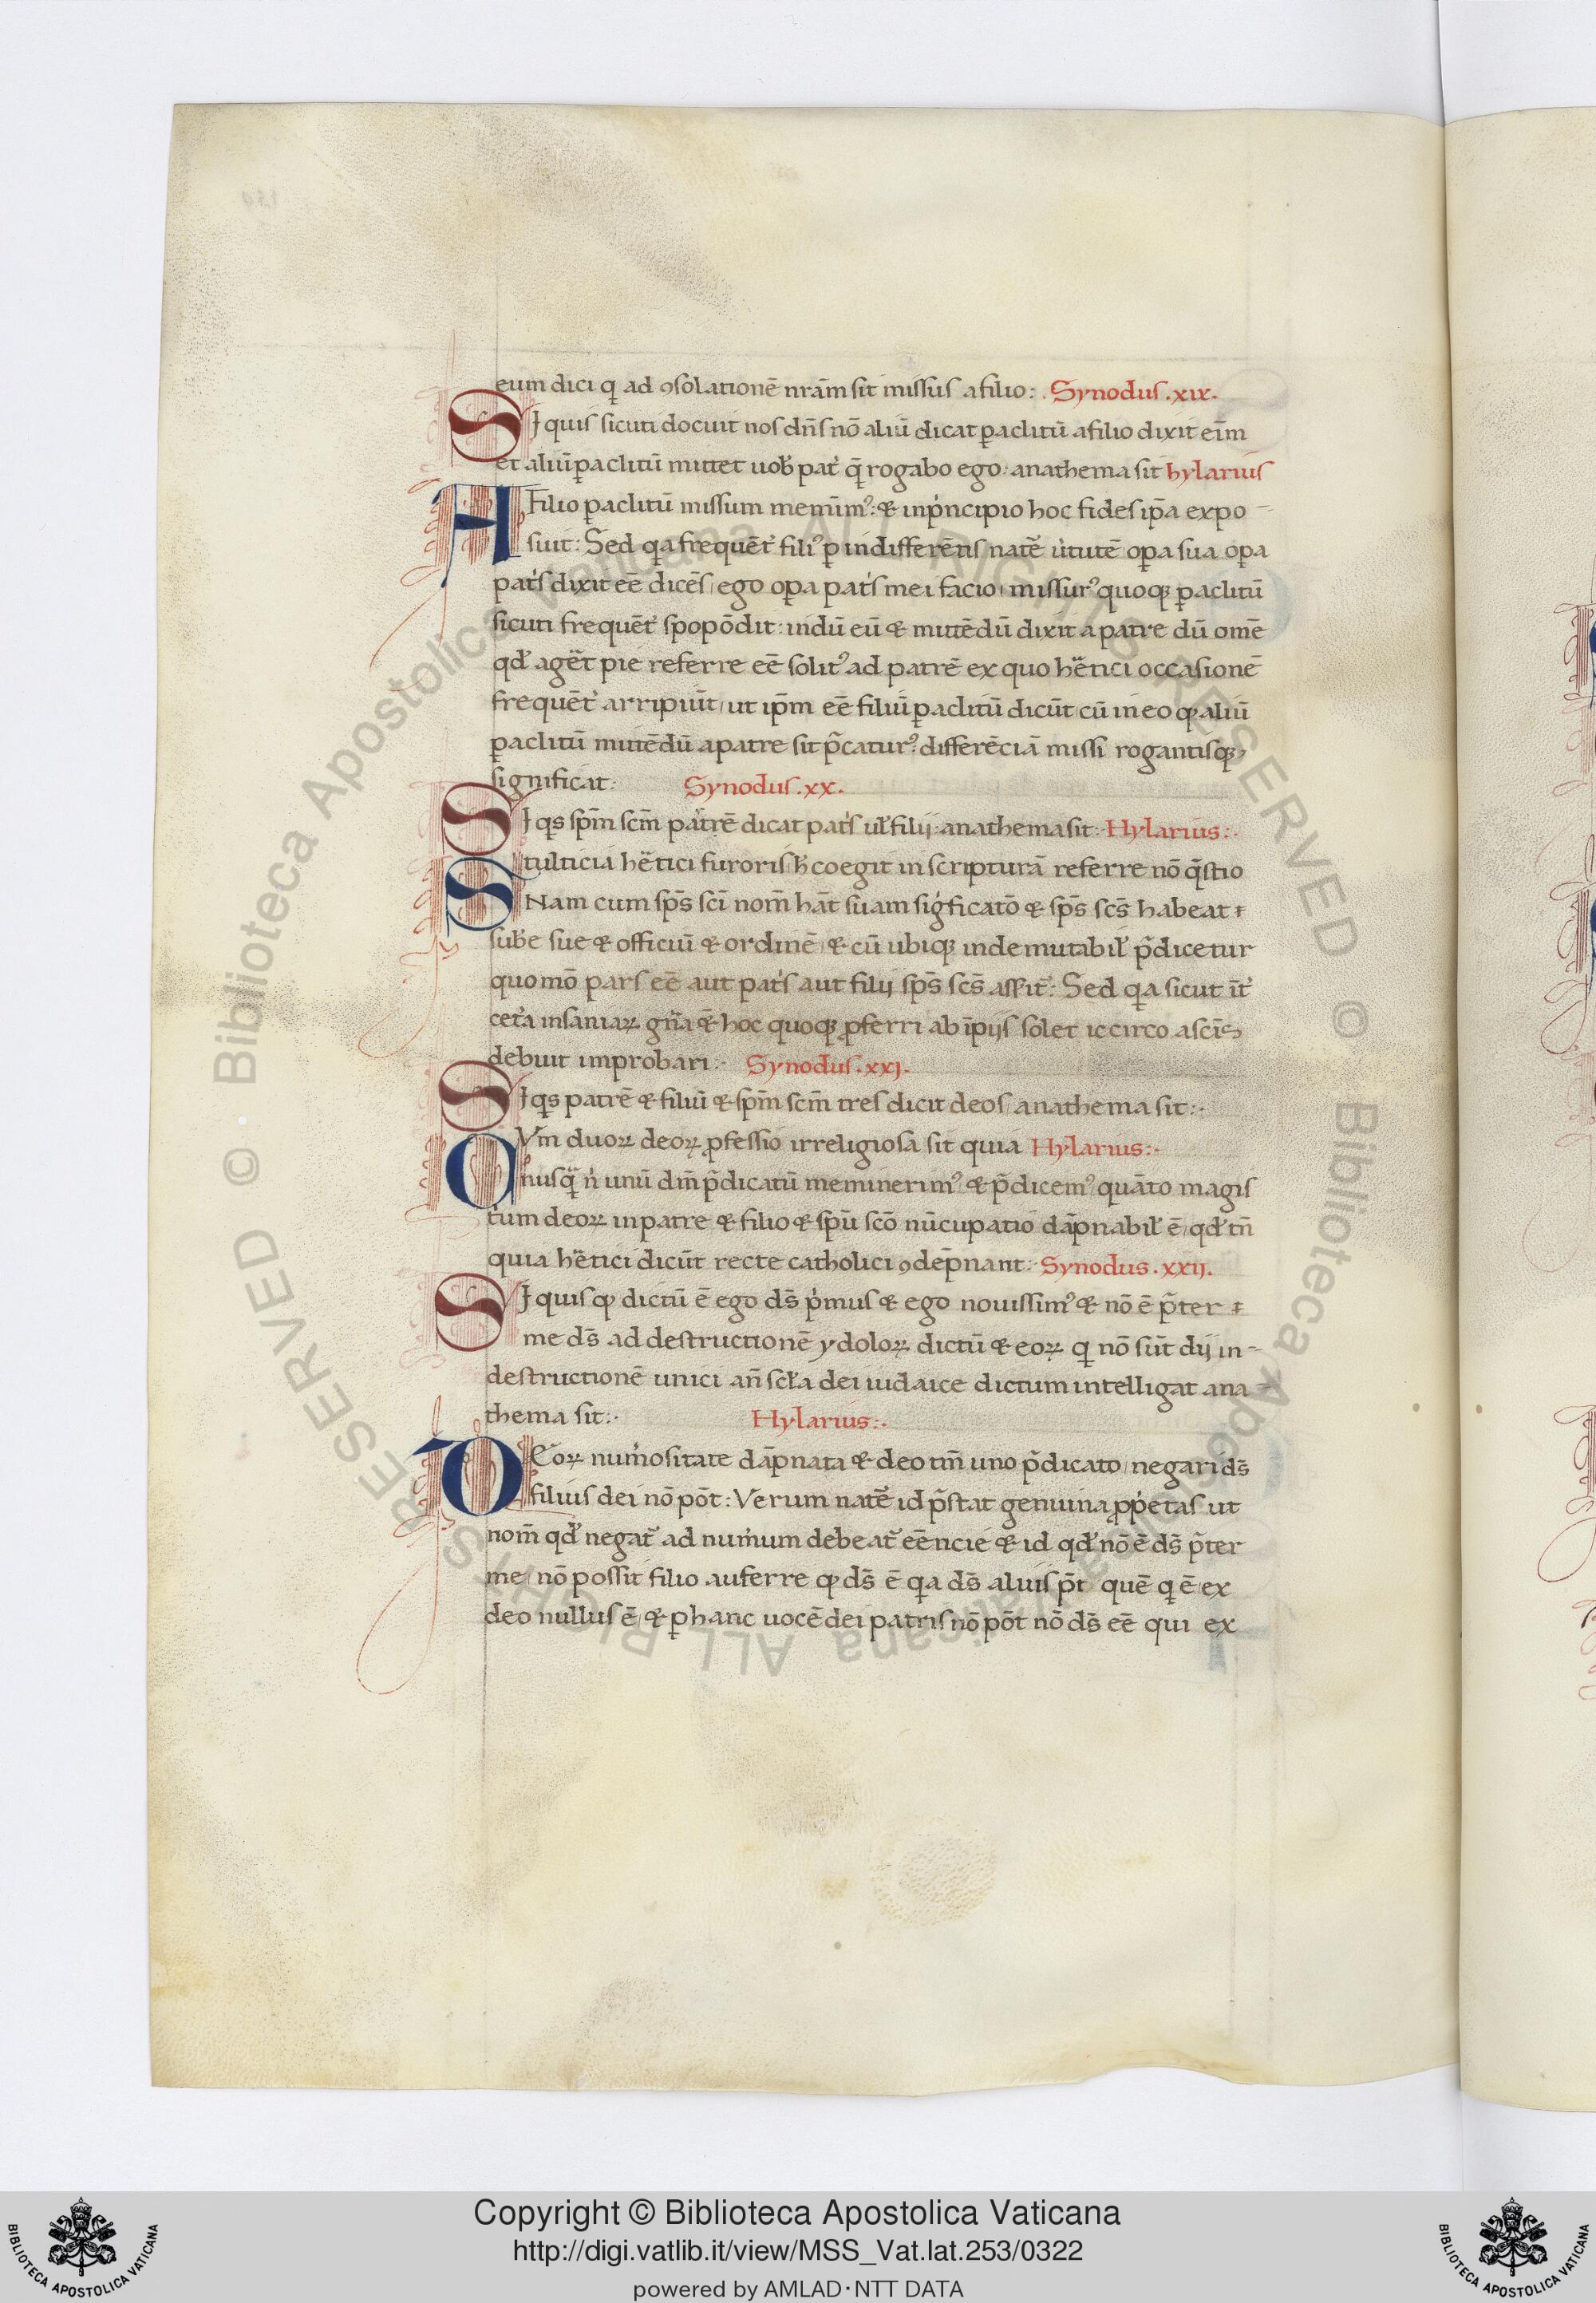 eum dici ꝙ ad ꝯsolationē nrām sit missus afilio: Synodus .xix.
SI quis sicuti docuit nos dn̄s nō aliū dicat ꝑaclitū afilio dixit eī̄m
et aliū ꝑaclitū mittet uob̾ pat̾ q̄ rogabo ego: anathema sit hylarius
A Filio ꝑaclitū missum memīm᷒: & inp̾ncipio hoc fides ip̄a expo-
suit: Sed qꝛa frequēt̾ fili᷒ ꝑ indifferētis nate᷑ u̾tutē oꝑa sua oꝑa
pat̾s dixit eē dicēs, ego oꝑa pat̾s mei facio, missur᷒ quoqꝫ ꝑaclitū
sicuti frequēt̾ spopōdit: indū eū & mittēdū dixit a patre dū omē
qd̾ aget̾ pie referre eē solit᷒ ad patrē ex quo hētici occasionē
frequēt̾ arripiūt, ut ip̄m eē filiū ꝑaclitū dicūt cū in eo ꝙ aliū
ꝑaclitū mittēdū apatre sit p̄catur᷒: differēciā missi rogantisqꝫ,
significat: Synodus .xx.
SI qs sp̄m scm̄ patrē dicat pat̾s ul̾ filij: anathema sit: Hylarius:.
Stulticia hētici furoris h̾ coegit in scripturā referre nō q̄stio
Nam cum sp̄s sc̄i nom̄ hāt suam sig̾ficatō & sp̄s sc̄s habeat
sub̾e sue & officiū & ordinē, & cū ubiqꝫ indemutabil̾ p̄dicetur
quomō pars eē aut pat̾s aut filij sp̄s sc̄s assit̾: Sed qꝛa sicut īt̾
cet̾a insaniaꝝ gn̄a & hoc quoqꝫ ꝓferri ab īpijs solet iccirco ascīs
debuit improbari:. Synodus .xxj.
SI qs patrē & filiū & sp̄m scm̄ tres dicit deos, anathema sit:.
QVm duoꝝ deoꝝ ꝓfessio irreligiosa sit quia Hylarius:.
nusq̄ n̾ unū dm̄ p̄dicatū meminerim᷒ & p̄dicem᷒ quāto magis
t̾um deoꝝ in patre & filio & spū scō nūcupatio dāpnabil̾ ē, qd̾ tn̄
quia hētici dicūt recte catholici ꝯdēpnant: Synodus .xxij.
SI quis ꝙ dictū ē ego ds̄ p̾mus & ego nouissim᷒ & nō ē p̄ter
me ds̄ ad destructionē ydoloꝝ dictū & eoꝝ ꝗ nō sūt dij in-
destructionē unici an̄ scl̾a dei iudaice dictum intelligat ana
thema sit:. Hylarius:.
DEoꝝ num̾ositate dāpnata & deo tm̄ uno p̄dicato, negari ds̄
filius dei nō pōt: Verum nate᷑ id p̄stat genuina ꝓp̾etas ut
nom̄ qd̾ negat̾ ad num̾um debeat̾ eēncie & id qd̾ nō ē ds̄ p̄ter
me, nō possit filio auferre ꝙ ds̄ ē qꝛa ds̄ aluis p̄t quē ꝗ ē, ex
deo nullus ē, & ꝑ hanc uocē dei patris nō pōt nō ds̄ eē qui ex
Copyright © Biblioteca Apostolica Vaticana
http://digi.vatlib.it/view/MSS_Vat.lat.253/0322
powered by AMLAD·NTT DATA